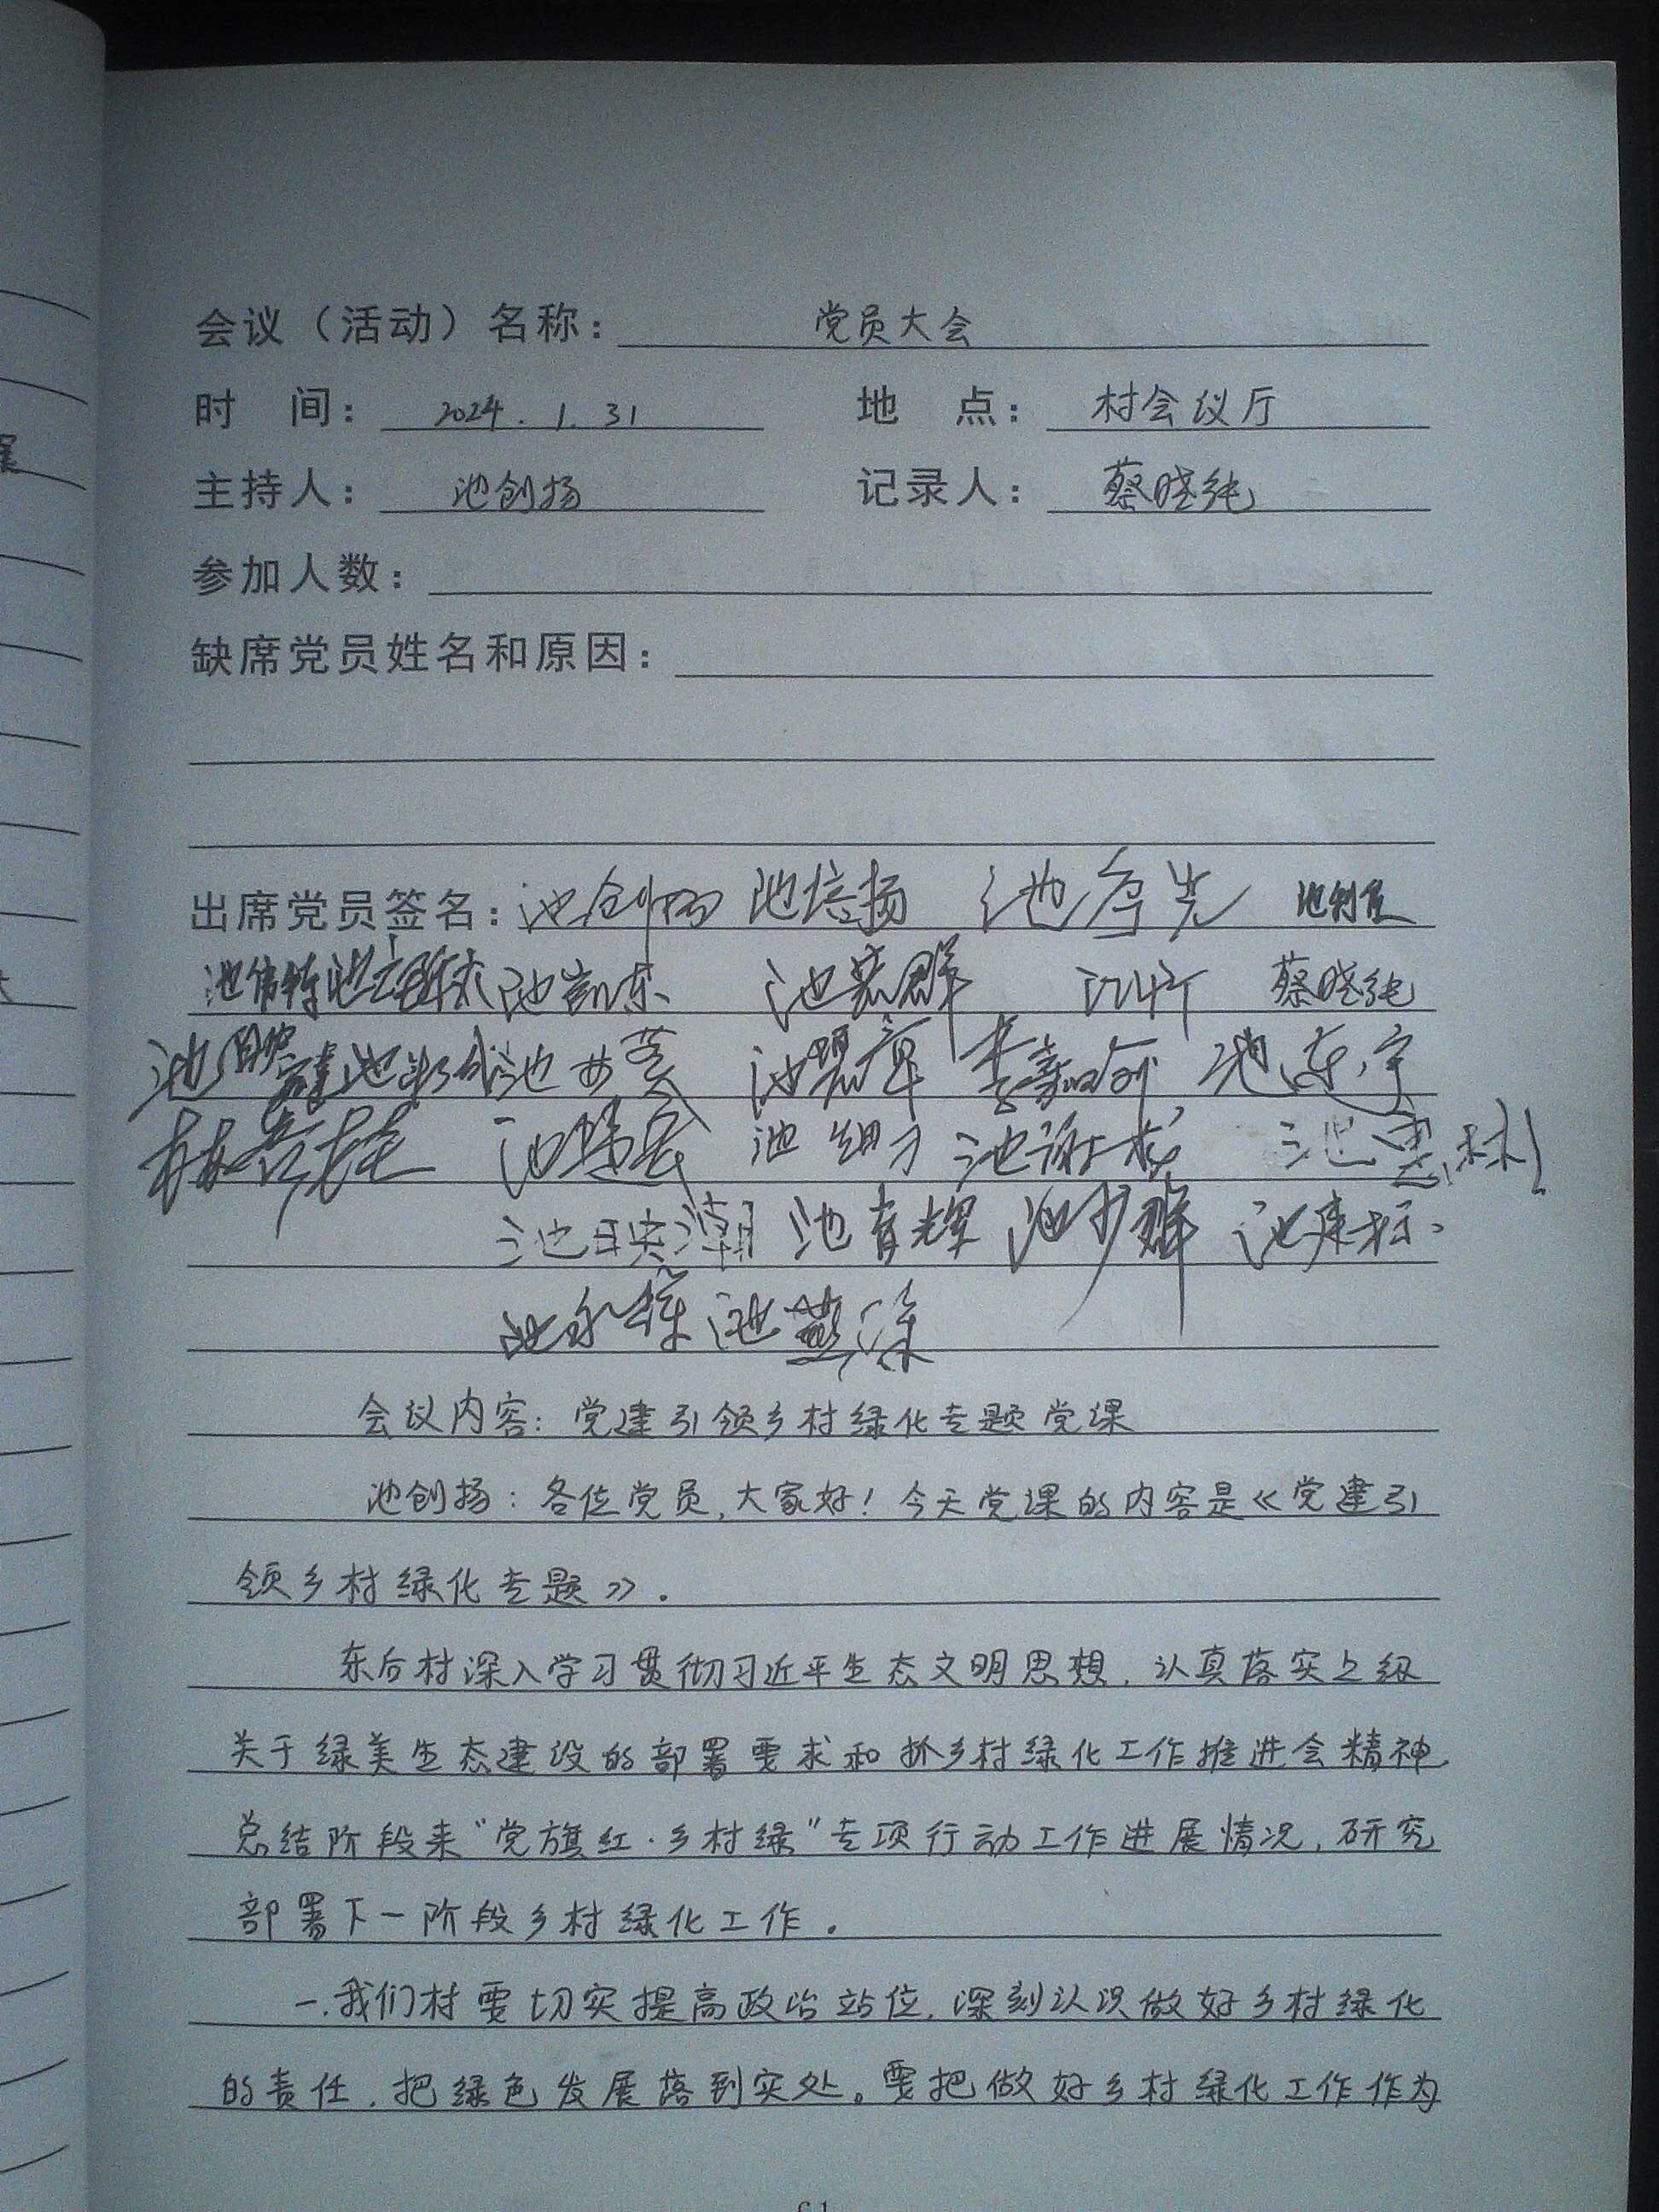 会议（活动）名称：党员大会
时 间：2024.1.31 地 点：村会议厅
主持人：池创扬 记录人：蔡晓纯
参加人数：
缺席党员姓名和原因：
出席党员签名：池创扬 池培扬 池
池凯东 池 蔡晓纯
池 池 池 池
池 池细 池谢 池惠林
池映潮 池育辉 池少群 池
池 池燕深
会议内容：党建引领乡村绿化专题党课
池创扬：各位党员，大家好！今天党课的内容是《党建引
领乡村绿化专题》.
东后村深入学习贯彻习近平生态文明思想，认真落实上级
关于绿美生态建设的部署要求和抓乡村绿化工作推进会精神
总结阶段来“党旗红·乡村绿”专项行动工作进展情况，研究
部署下一阶段乡村绿化工作.
一.我们村要切实提高政治站位，深刻认识做好乡村绿化
的责任，把绿色发展落到实处。要把做好乡村绿化工作作为